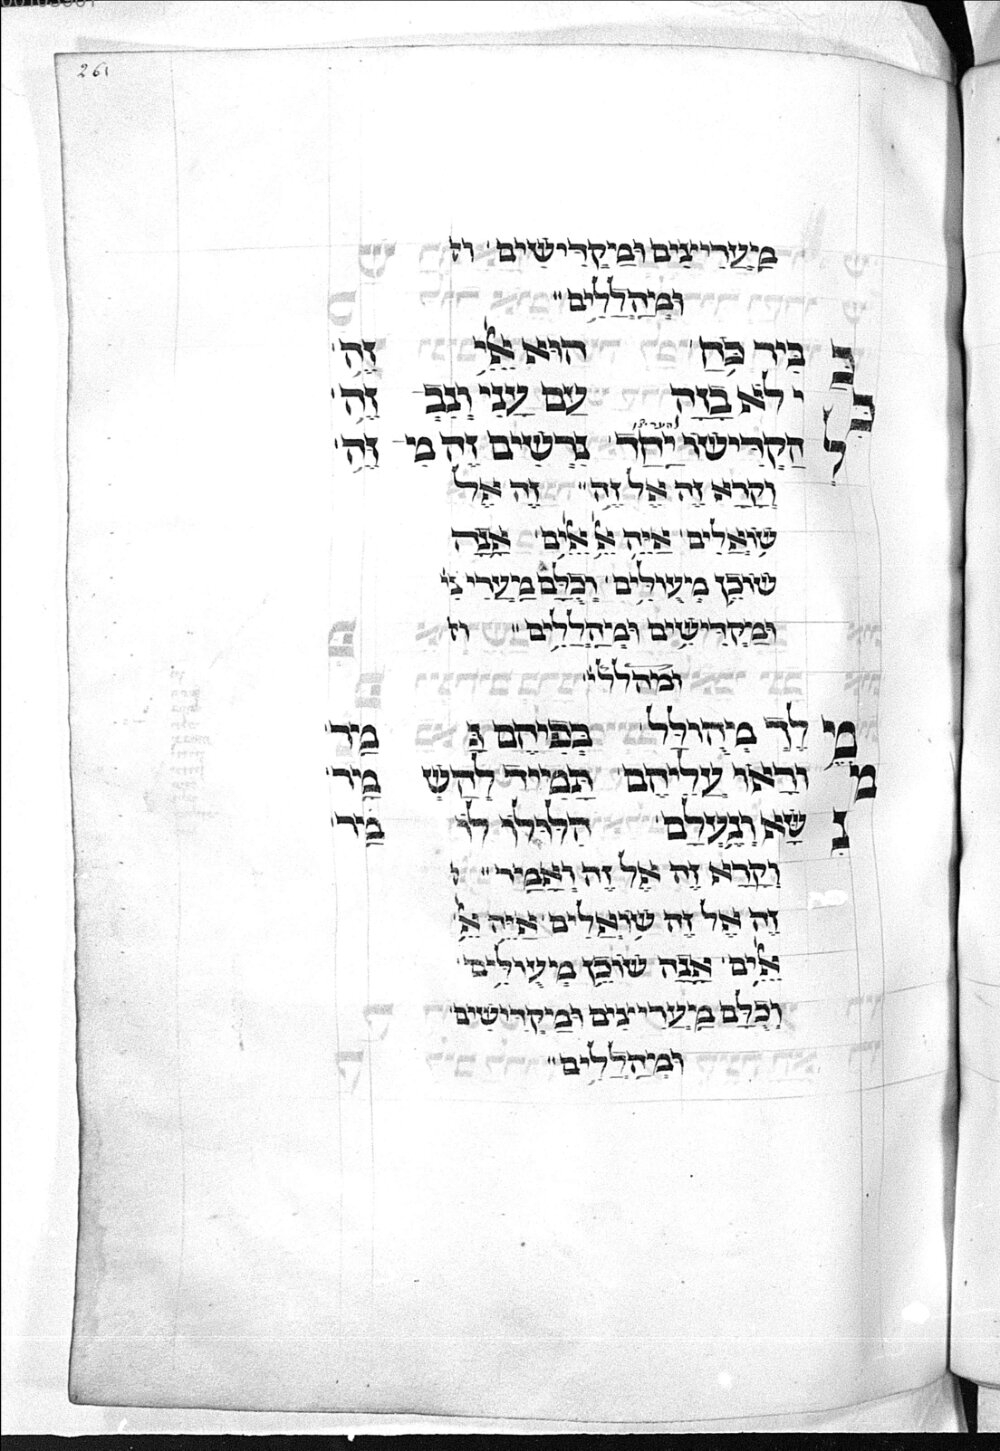 261
מַיְעֲרִיצִים וּמַיְקְדִישִׁים׳ וז
וּמְיְהַלְלִים״
כַּבִּיר כֹּחַ׳ הוּא אֵ֗לִי זֶה׳
כִּי לֹא בָזָה עִם עָנִי וְנִבְ זֶה׳
לְ הַקְדִישׁוֹ יַחַד׳ נִדְרָשִׁים זֶה מִ זֶּה׳
להעריצו
וְקָרָא זֶה אֶל זֶה״ זֶה אֶל
שׁוֹאֲלִים׳ אַיֵּה אֵ֗ל אֵלִים׳ אָנָּה
שׁוֹכֵן מְעוּלִים׳ וְכֻלָּם מַיְעֲרִיצִי
וּמַיְקְדִישִׁים וּמְיְהַלְלִים״ וז
ומהללי׳
מֶלֶךְ מְיְהוּלָּל׳ בְּפִיהֶם גָּ מִיד׳
מוֹרָאוֹ עֲלֵיהֶם׳ תָּמִיד לְהַשׁ מִיד׳
נִשָּׂא וְנֶעְלָם׳ הִלּוּלוֹ לוֹ מִיד׳
וְקָרָא זֶה אֶל זֶה וְאָמַיר״
זֶה אֶל זֶה שׁוֹאֲלִים אַיֵּה אֵ֗ל
אֵלִים׳ אָנָּה שׁוֹכֵן מְעוּלִים׳
וְכֻלָּם מַיְעֲרִיצִים וּמַיְקְדִישִׁים׳
וּמְיְהַלְלִים״